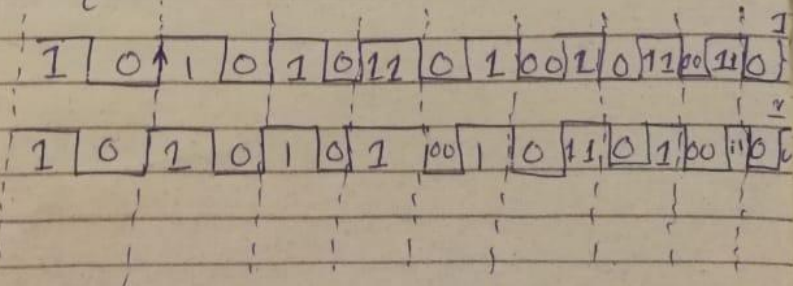 1 0 1 0 1 0 11 0 1 00 1 0 11 00 11 0
1 0 1 0 1 0 1 00 1 0 11 0 1 00 11 0